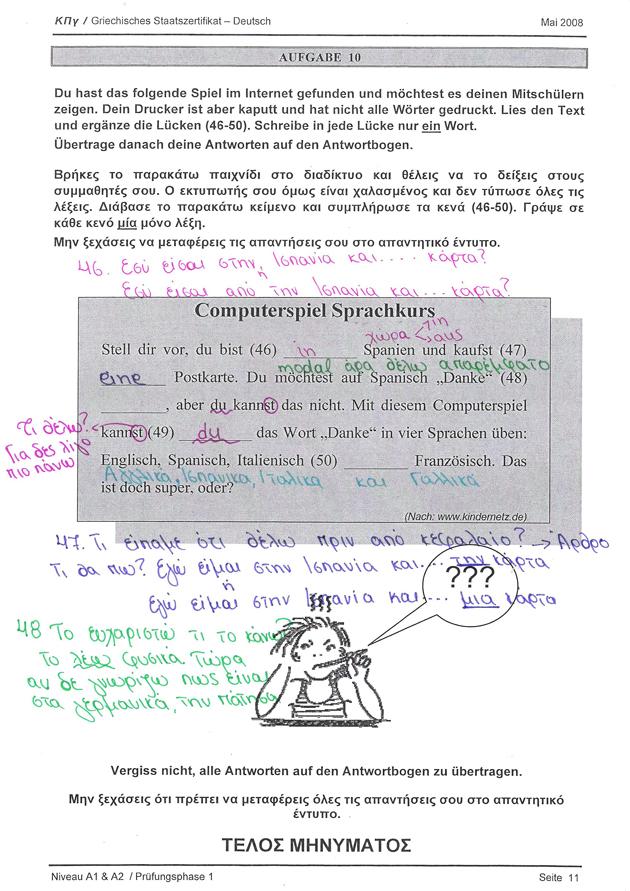 ΚΠγ / Griechisches Staatszertifikat – Deutsch Mai 2008
AUFGABE 10
Du hast das folgende Spiel im Internet gefunden und möchtest es deinen Mitschülern
zeigen. Dein Drucker ist aber kaputt und hat nicht alle Wörter gedruckt. Lies den Text
und ergänze die Lücken (46-50). Schreibe in jede Lücke nur ein Wort.
Übertrage danach deine Antworten auf den Antwortbogen.
Βρήκες το παρακάτω παιχνίδι στο διαδίκτυο και θέλεις να το δείξεις στους
συμμαθητές σου. Ο εκτυπωτής σου όμως είναι χαλασμένος και δεν τύπωσε όλες τις
λέξεις. Διάβασε το παρακάτω κείμενο και συμπλήρωσε τα κενά (46-50). Γράψε σε
κάθε κενό μία μόνο λέξη.
Μην ξεχάσεις να μεταφέρεις τις απαντήσεις σου στο απαντητικό έντυπο.
46. Εσύ είσαι στην Ισπανία και.... κάρτα?
ή
Εσύ είσαι από την Ισπανία και... κάρτα?
Computerspiel Sprachkurs
χώρα in
aus
Stell dir vor, du bist (46) in Spanien und kaufst (47)
modal άρα θέλω απαρέμφατο
eine Postkarte. Du möchtest auf Spanisch „Danke“ (48)
________, aber du kannst das nicht. Mit diesem Computerspiel
Τι θέλω?
Για δες λίγο
πιο πάνω
kannst (49) du das Wort „Danke“ in vier Sprachen üben:
Englisch, Spanisch, Italienisch (50) ________ Französisch. Das
Αγγλικά, Ισπανικά, Ιταλικά και Γαλλικά
ist doch super, oder?
(Nach: www.kindernetz.de)
47. Τι είπαμε ότι θέλω πριν από κεφαλαίο? → Άρθρο
Τι θα πω? Εγώ είμαι στην Ισπανία και.... την κάρτα
ή
Εγώ είμαι στην Ισπανία και.... μια κάρτα
???
???
48 Το ευχαριστώ τι το κάνω?
Το λέω φυσικά Τώρα
αν δε γνωρίζω πως είναι
στα γερμανικά, την πάτησα
Vergiss nicht, alle Antworten auf den Antwortbogen zu übertragen.
Μην ξεχάσεις ότι πρέπει να μεταφέρεις όλες τις απαντήσεις σου στο απαντητικό
έντυπο.
ΤΕΛΟΣ ΜΗΝΥΜΑΤΟΣ
Niveau A1 & A2 / Prüfungsphase 1 Seite 11